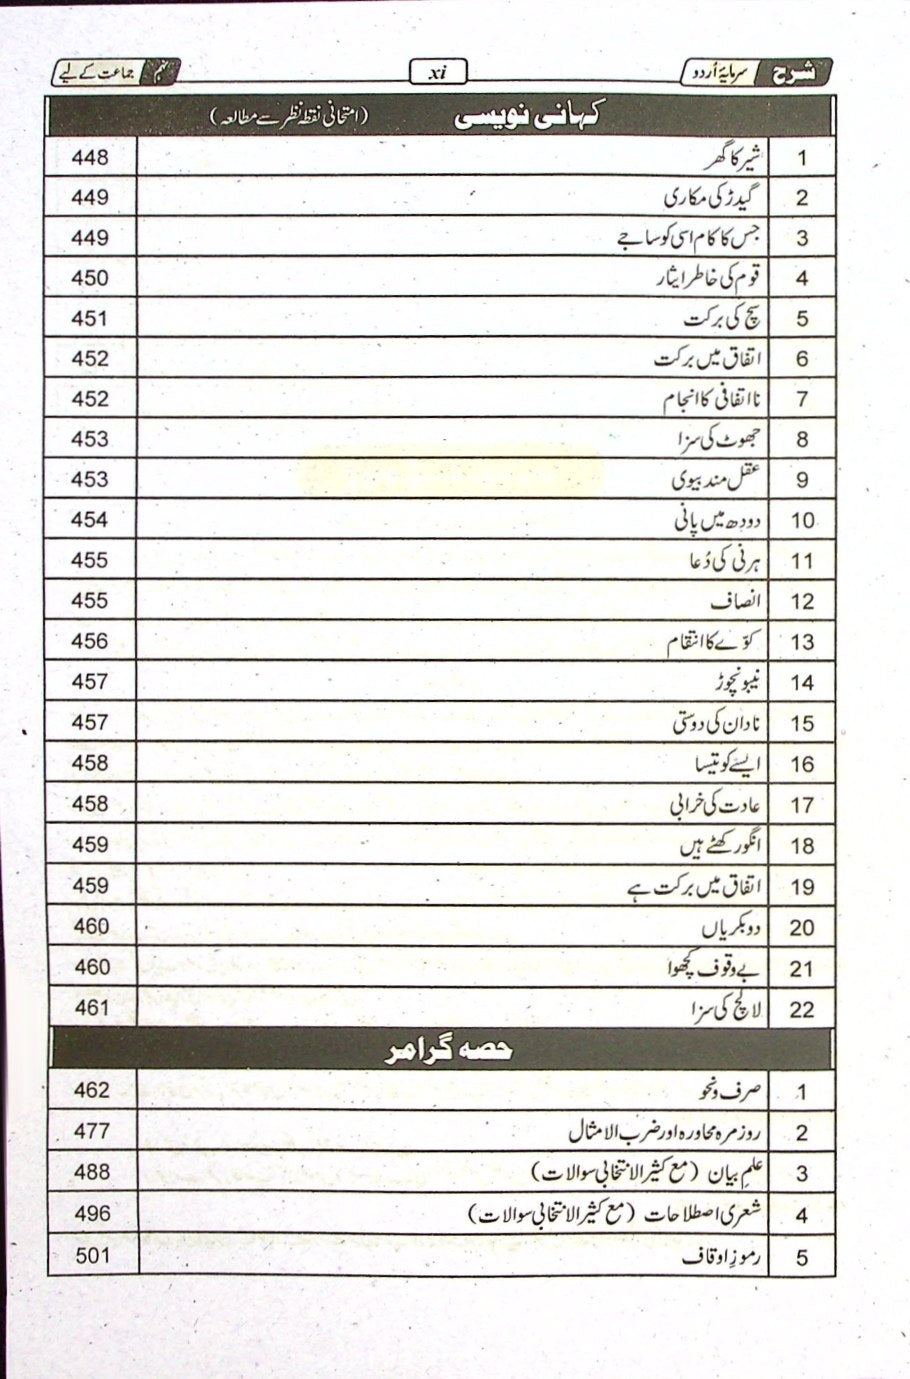 شرح سرمایۂ اُردو xi نہم جماعت کے لیے
کہانی نویسی (امتحانی نقطہ نظر سے مطالعہ)
1 شیر کا گھر 448
2 گیدڑ کی مکاری 449
3 جس کا کام اسی کو ساجے 449
4 قوم کی خاطر ایثار 450
5 سچ کی برکت 451
6 اتفاق میں برکت 452
7 نااتفاقی کا انجام 452
8 جھوٹ کی سزا 453
9 عقل مند بیوی 453
10 دودھ میں پانی 454
11 ہرنی کی دُعا 455
12 انصاف 455
13 کوّے کا انتقام 456
14 نیبو نچوڑ 457
15 نادان کی دوستی 457
16 ایسے کو تیسا 458
17 عادت کی خرابی 458
18 انگور کھٹے ہیں 459
19 اتفاق میں برکت ہے 459
20 دو بکریاں 460
21 بے وقوف کچھوا 460
22 لالچ کی سزا 461
حصہ گرامر
1 صرف و نحو 462
2 روزمرہ محاورہ اور ضرب الامثال 477
3 علمِ بیان (مع کثیر الانتخابی سوالات) 488
4 شعری اصطلاحات (مع کثیر الانتخابی سوالات) 496
5 رموزِ اوقاف 501